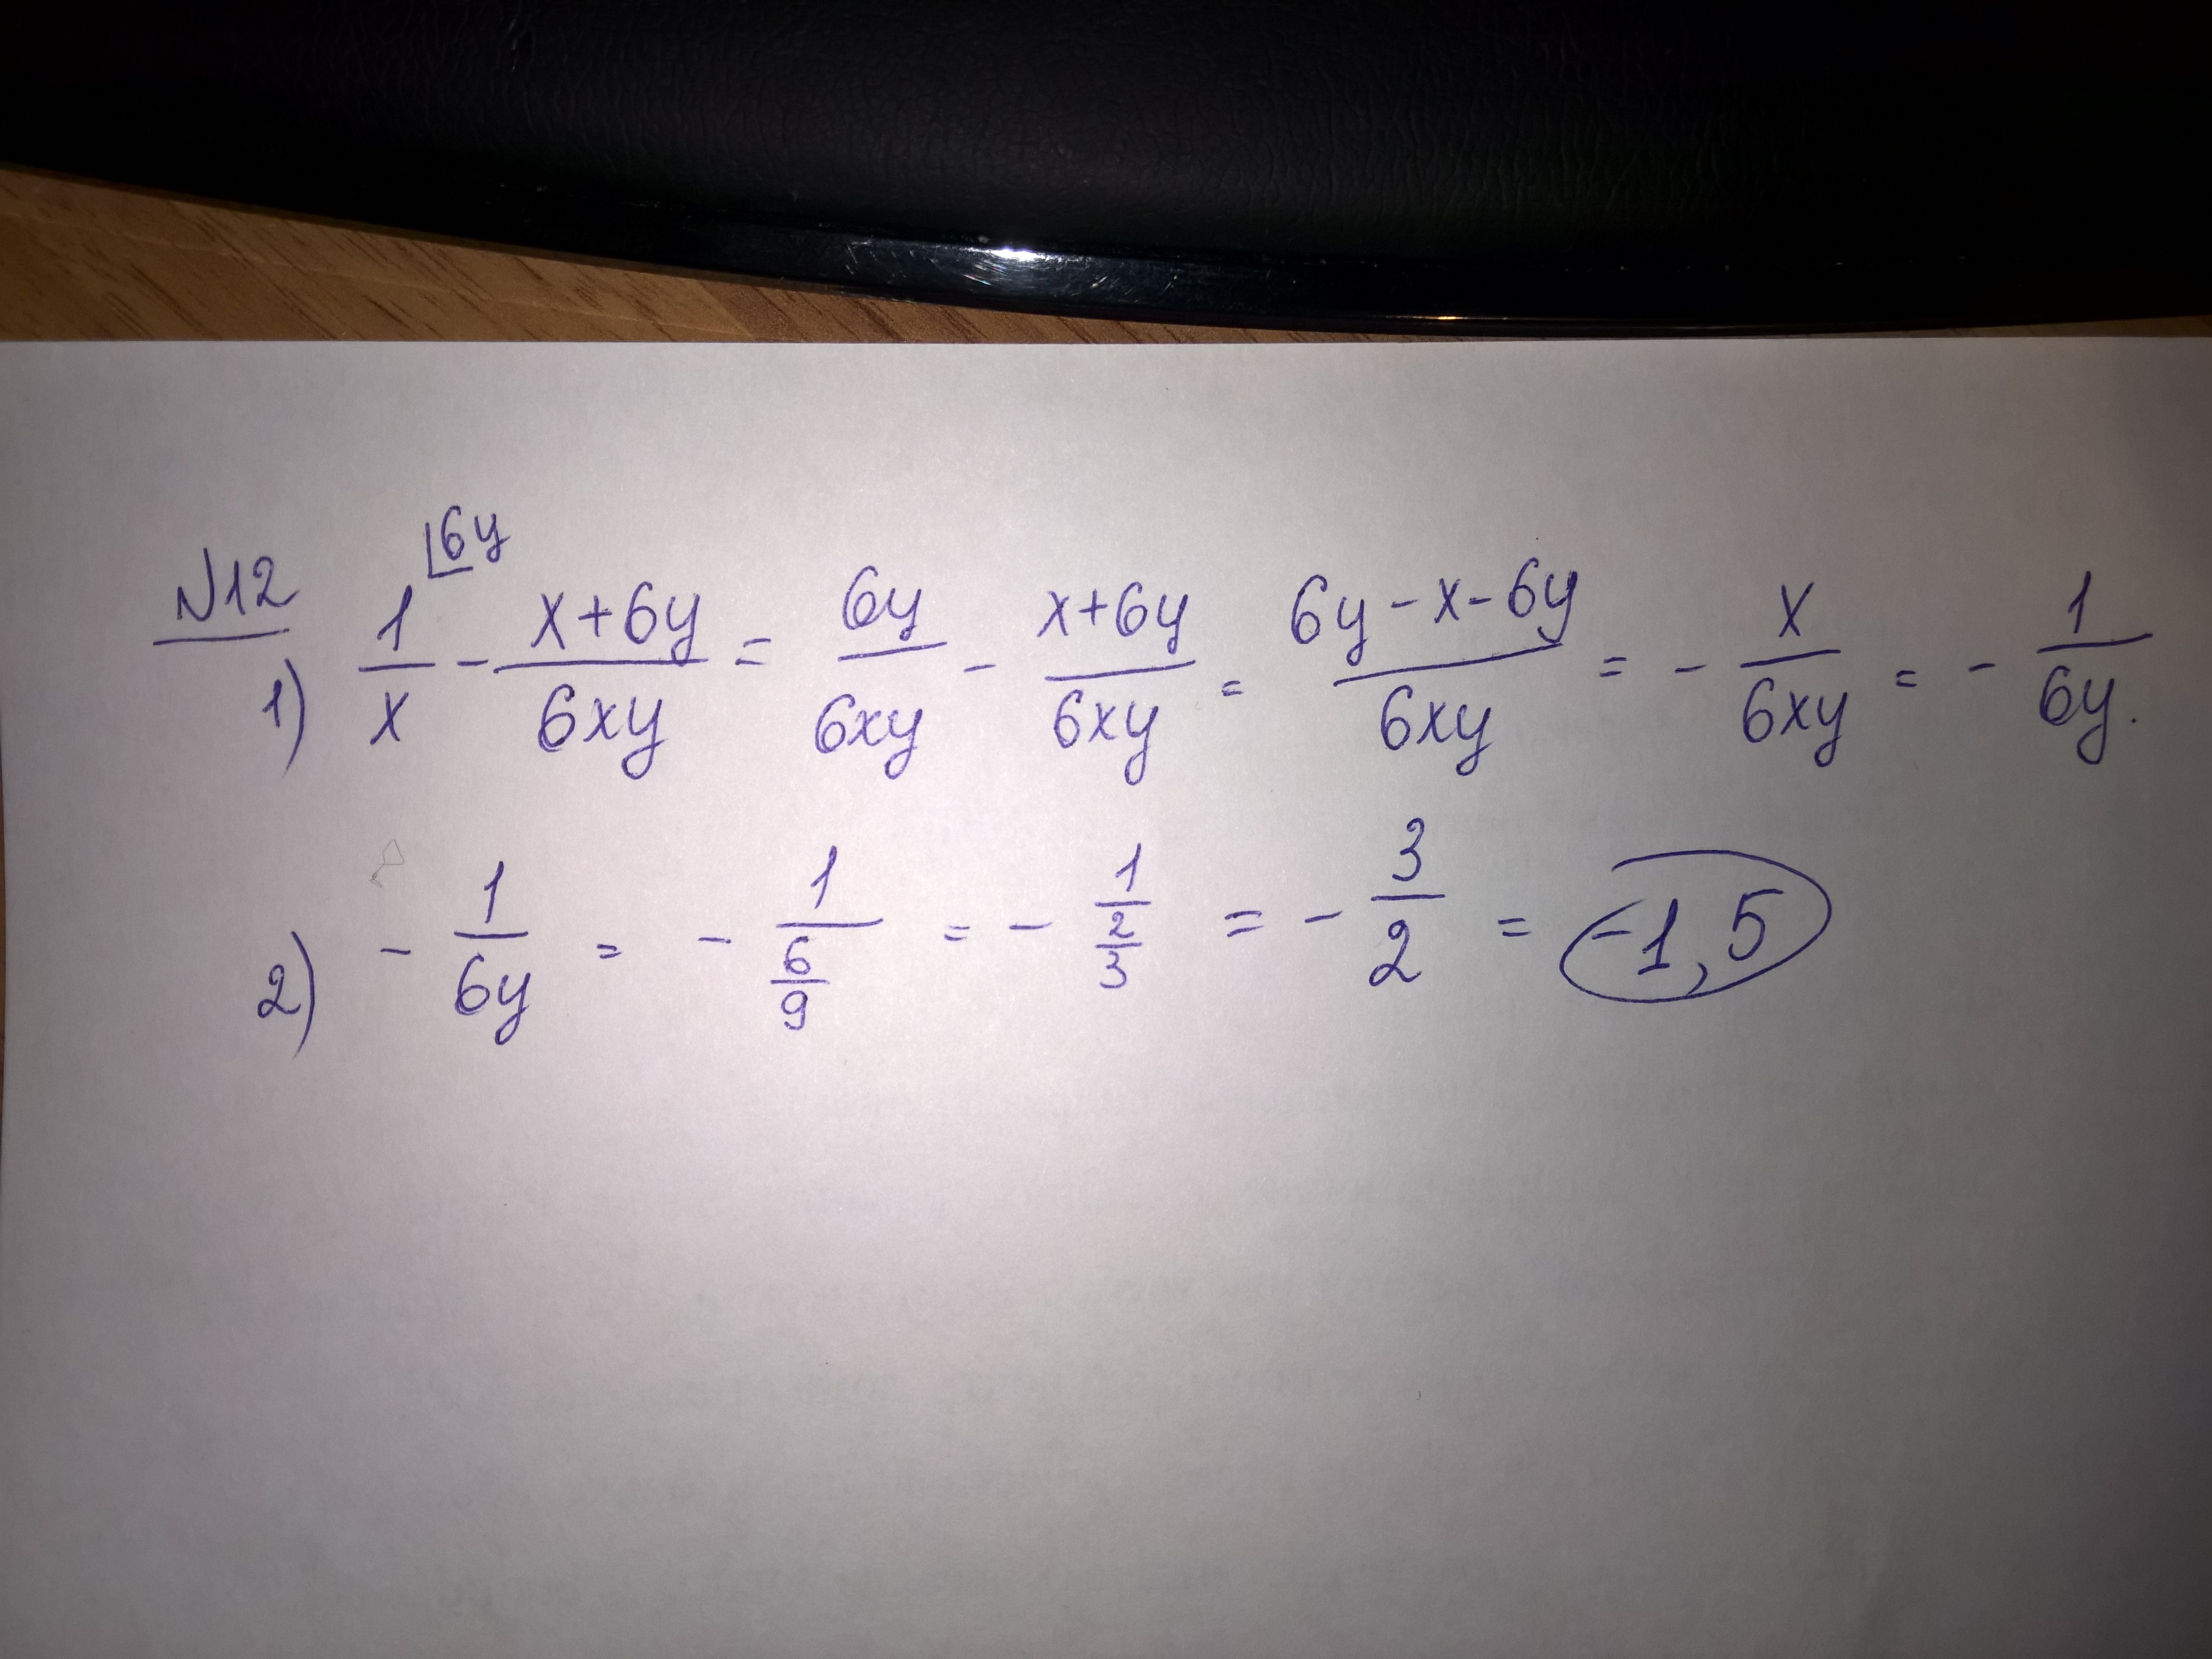 N12
1) 1/x ⌊6y - (x+6y)/(6xy) = 6y/(6xy) - (x+6y)/(6xy) = (6y-x-6y)/(6xy) = - x/(6xy) = - 1/(6y).
2) - 1/(6y) = - 1/(6/9) = - 1/(2/3) = - 3/2 = -1,5